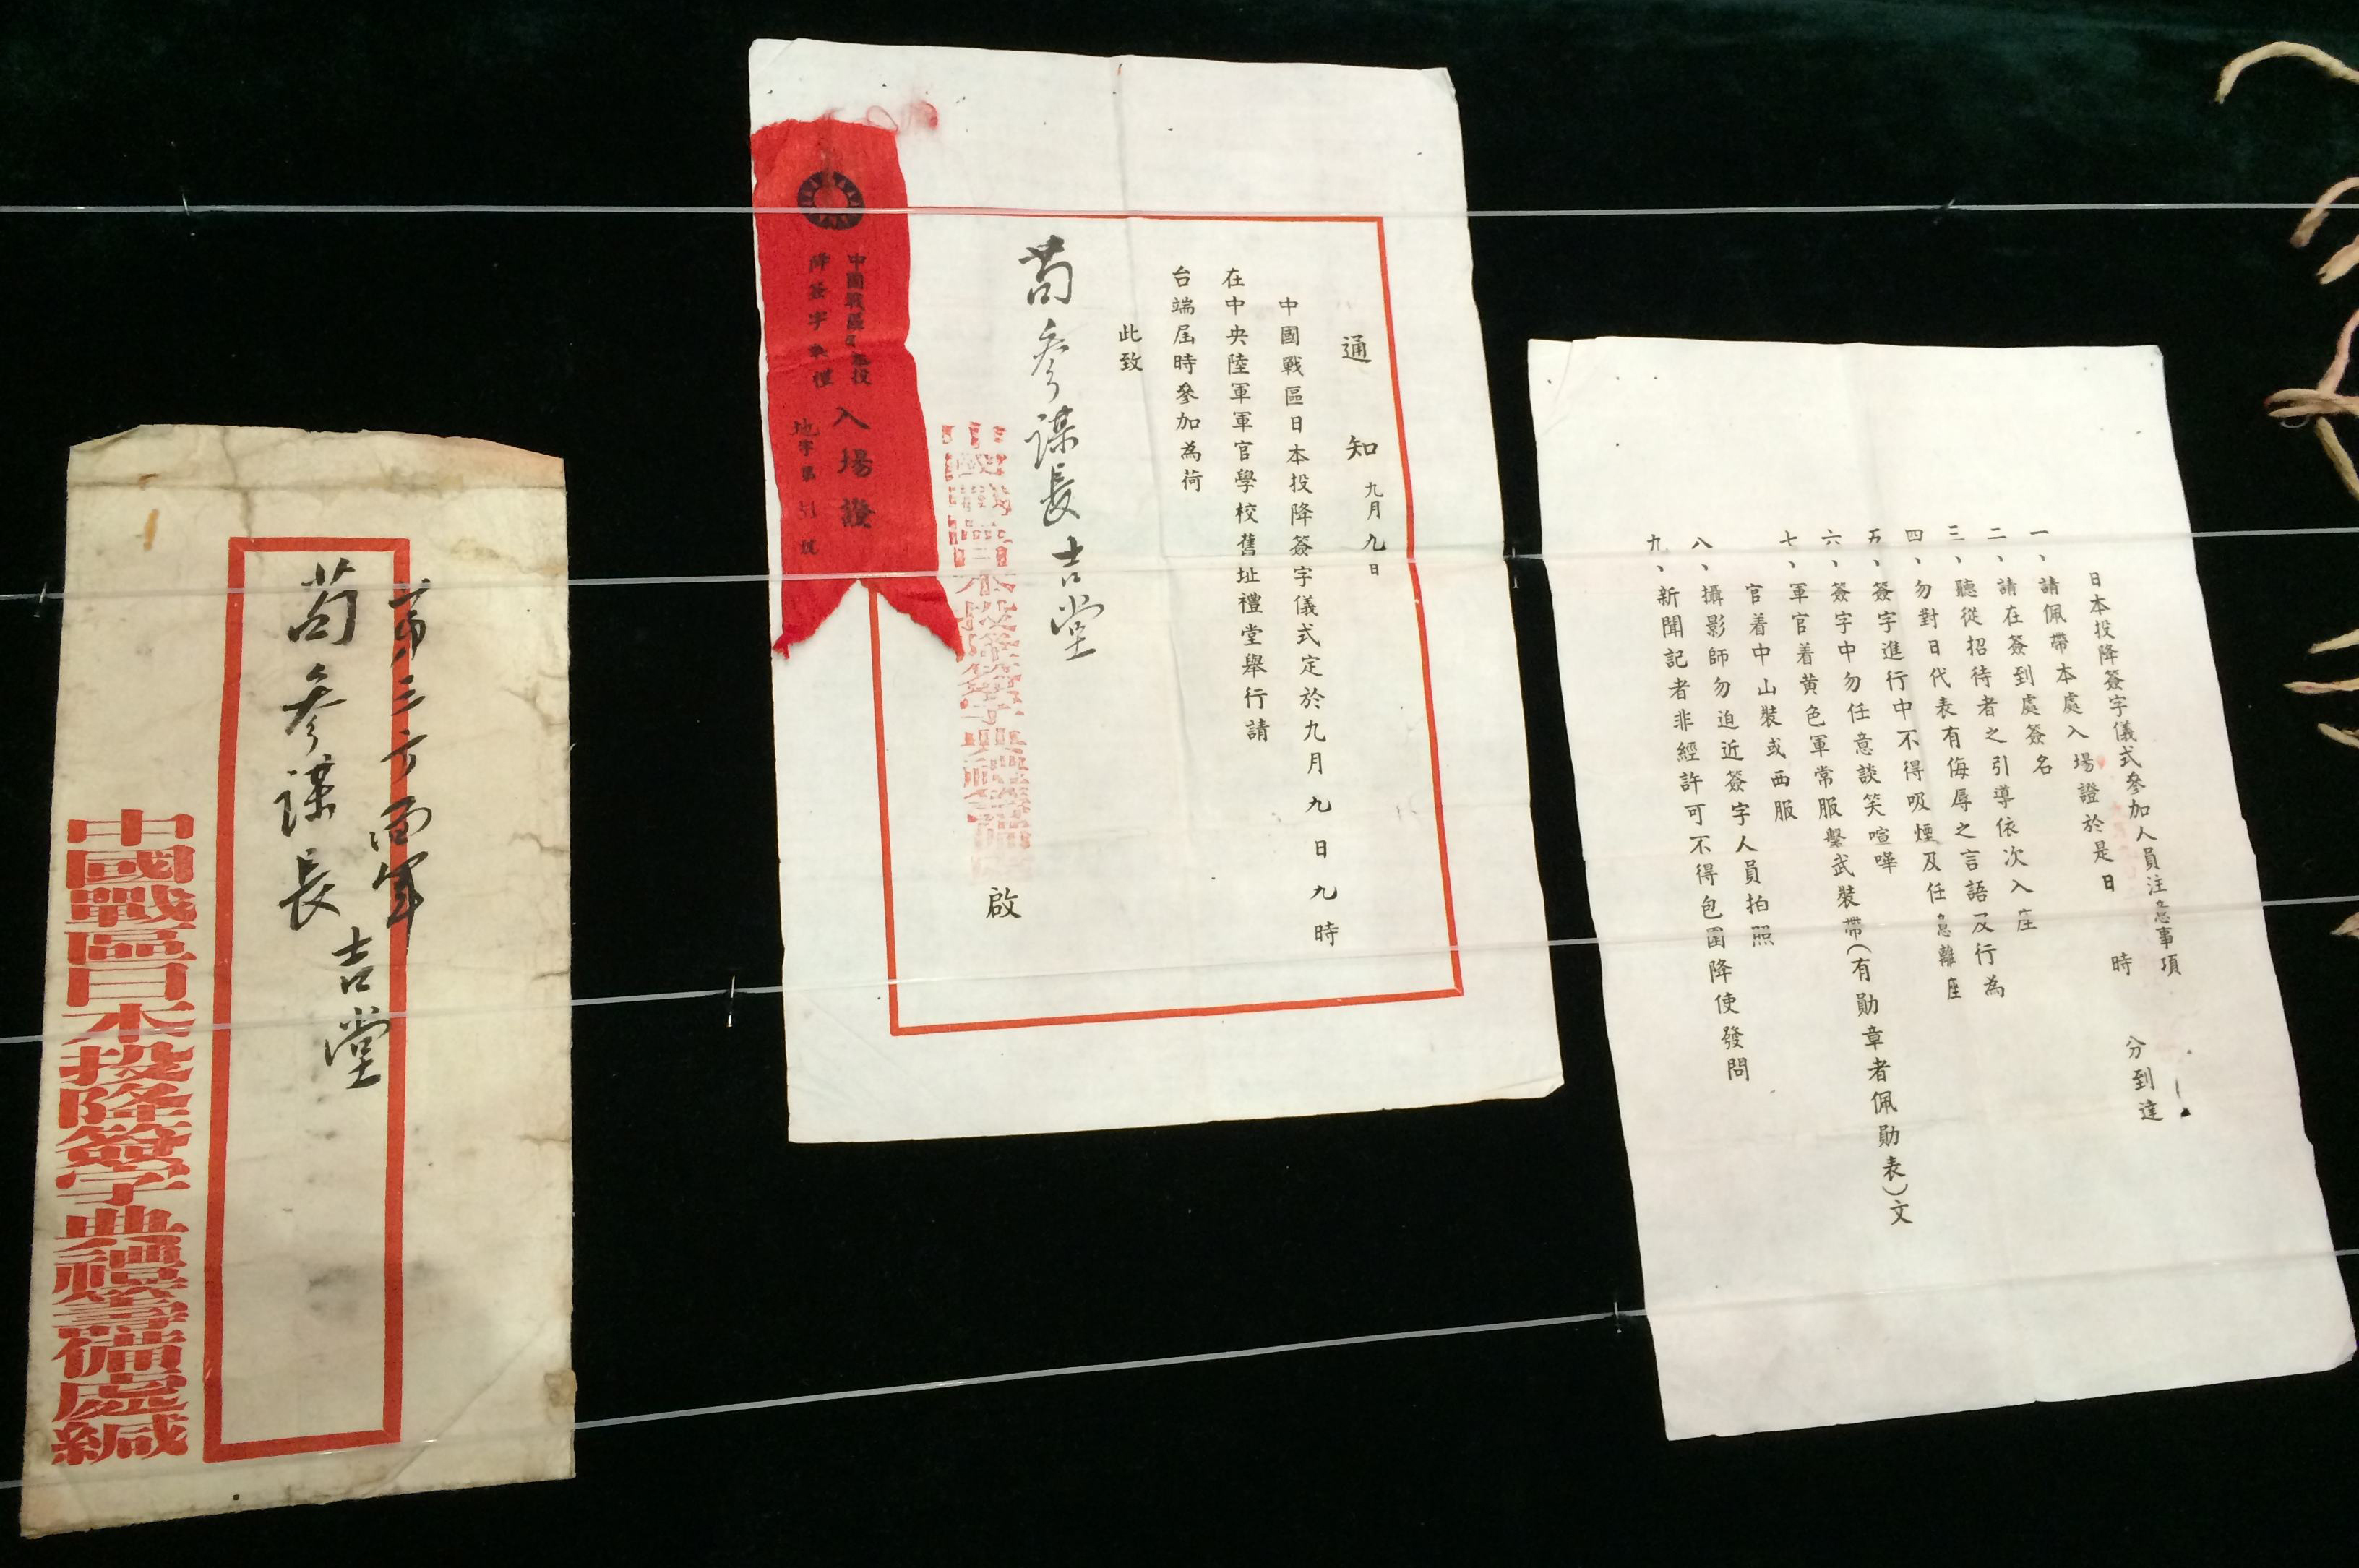 第三方面軍
苟參謀長 吉堂
中國戰區日本投降簽字典禮籌備處緘
通知 九月九日
中國戰區日本投降簽字儀式定於九月九日九時
在中央陸軍軍官學校舊址禮堂舉行請
台端屆時參加為荷
此致
苟參謀長吉堂
中國戰區日本投降簽字典禮籌備處
啟
中國戰區日本投
降簽字典禮
入場證
地字第 號
日本投降簽字儀式參加人員注意事項
一、請佩帶本處入場證於是日 時 分到達
二、請在簽到處簽名
三、聽從招待者之引導依次入座
四、勿對日代表有侮辱之言語及行為
五、簽字進行中不得吸煙及任意離座
六、簽字中勿任意談笑喧嘩
七、軍官着黄色軍常服繫武裝帶(有勛章者佩勛表)文
官着中山裝或西服
八、攝影師勿迫近簽字人員拍照
九、新聞記者非經許可不得包圍降使發問